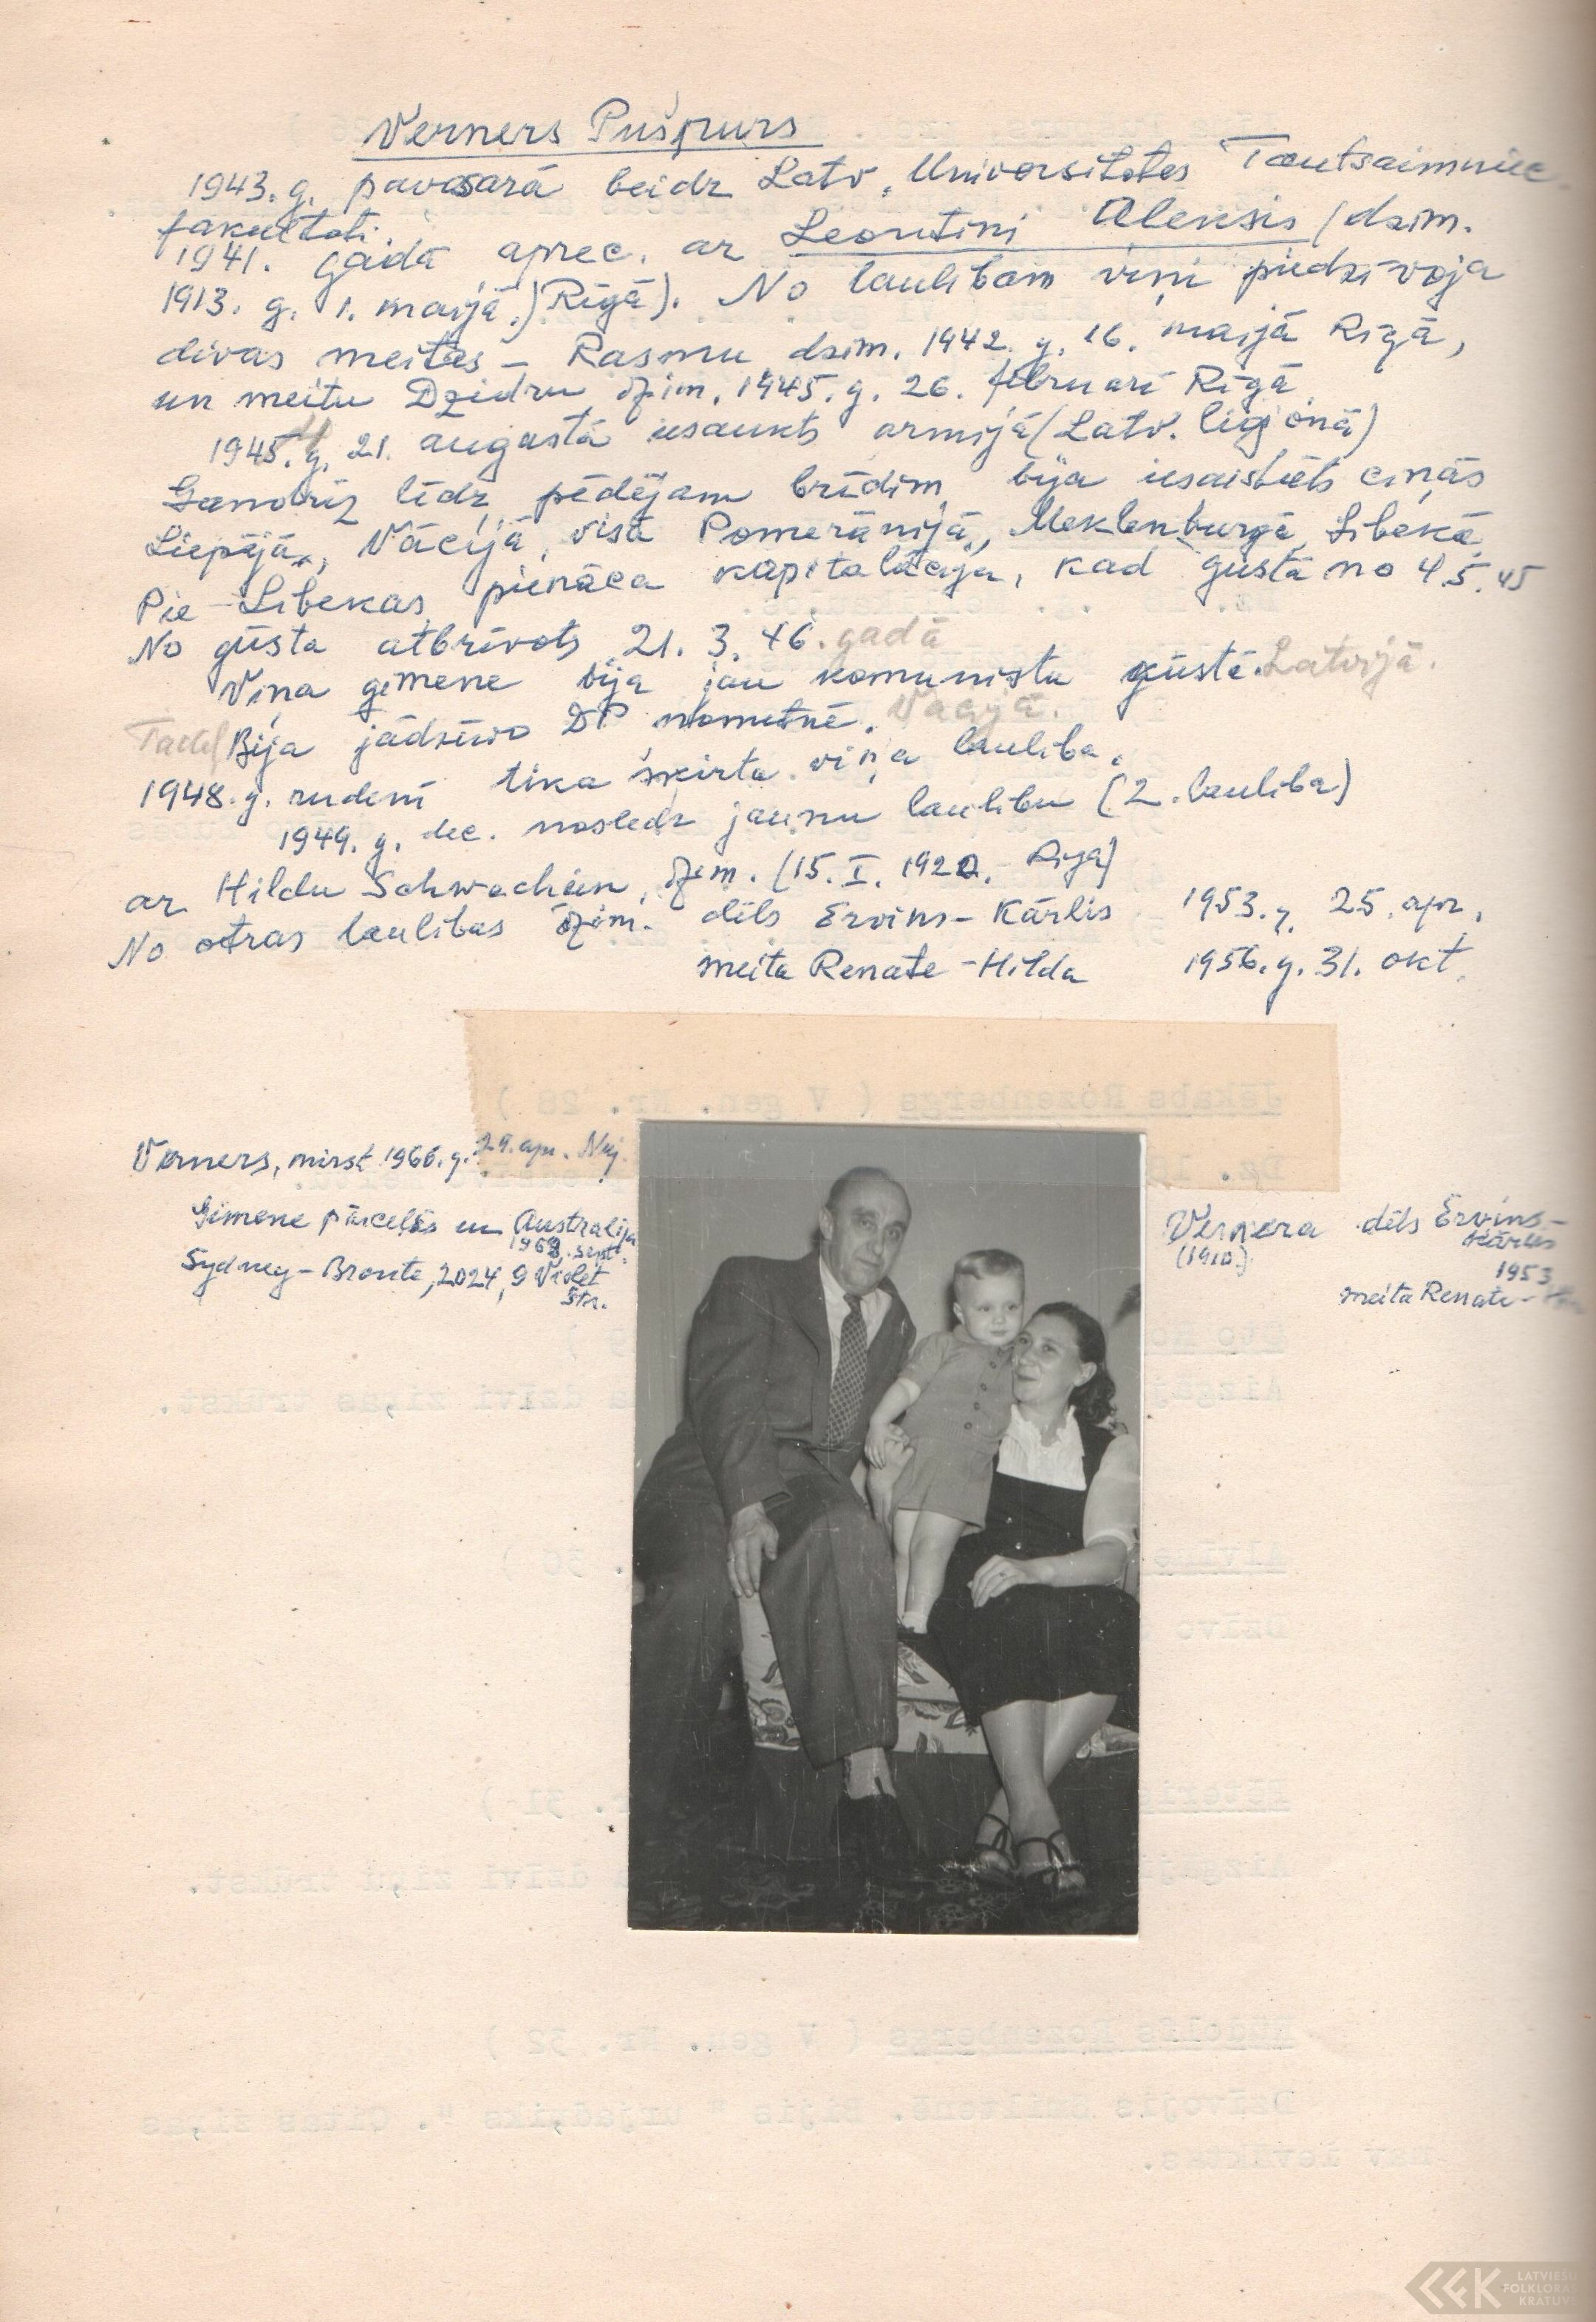 Verners Pušpurs
1943. g. pavasarā beidz Latv. Universitātes Tautsaimniec.
fakultāti.
1941. gadā aprec. ar Leontīni Aleksis (dzim.
1913. g. 1. maijā.) Rīgā). No laulībam viņi piedzīvoja
divas meitas – Rasmu dzim. 1942. g. 16. maijā Rīgā,
un meitu Dzidru dzim. 1945. g. 26. februarī Rīgā
1945. g. 21. augustā iesaukts armijā (Latv. ligjonā)
Gandrīz līdz pēdējam brīdim bija iesaistīts ciņās
Liepājā, Vācijā, visā Pomerānijā, Meklenburgā, Libekā
Pie Libekas pienāca kapitalācija, kad gūstā no 4.5.45
No gūsta atbrīvots 21. 3. 46. gadā
Viņa ģimene bija jau komunistu gūstē. Latvijā.
Tādēļ Bija jādzīvo DP nometnē. Vācijā.
1948. g. rudenī tika šķirta viņa laulība.
1949. g. dec. noslēdz jaunu laulību (2. laulība)
ar Hildu dzim. (15. I. 1920. Rīgā)
No otras laulības dzim. dēls Ervins – Kārlis 1953. g. 25. apr.
meita Renate – Hilda 1956. g. 31. okt.
Verners, mirst 1966. g. 29. apr.
Ģimene pārcelās uz Australiju
1968. sept.
Sydney – Bronte, 2024, 9 Violet
Str.
Vernera dēls Ervins –
(1910.) Kārlis
1953
meita Renate –
LATVIEŠU
FOLKLORAS
KRĀTUVE